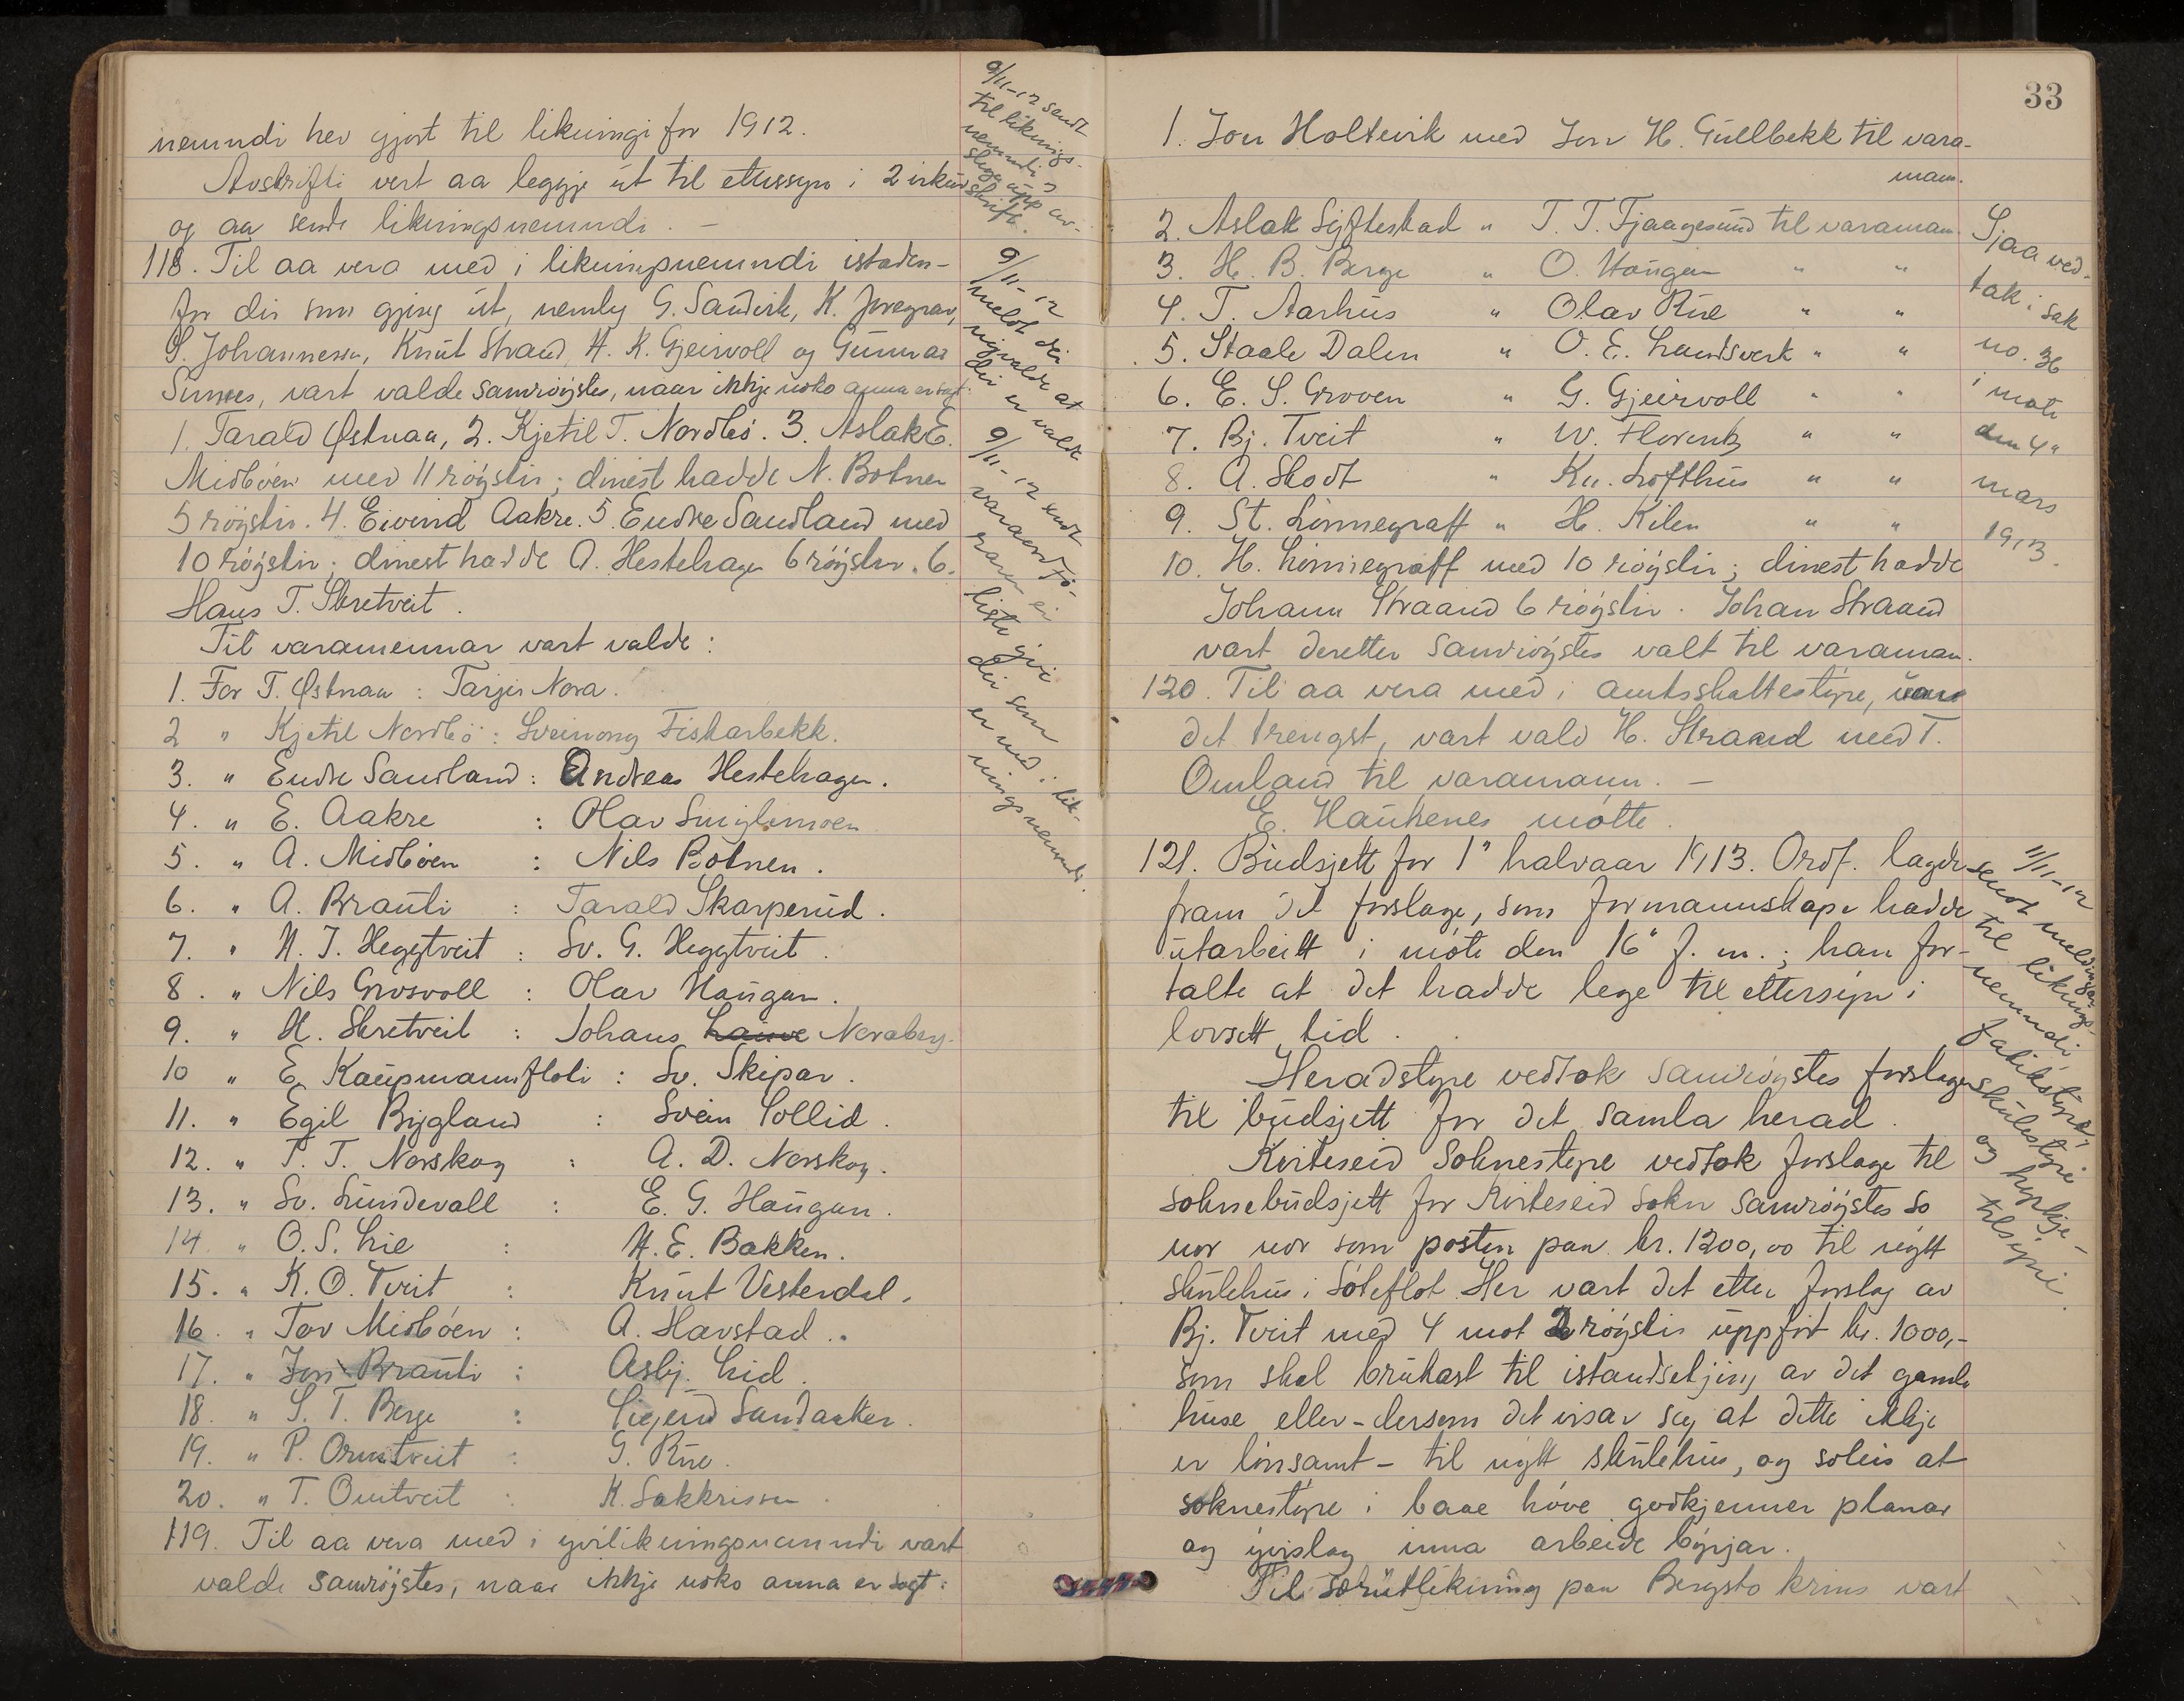 nemndi hev gjort til likningi for 1912.
Avskrifti vert aa leggje út til ettersyn i 2 vikur
og aa sende likningsnemndi. –
118. Til aa vera med i likningsnemndi istaden-
for dei som gjeng út, nemleg G. Sandvik, K.
S. Johannessen, Knút Straand, H. K. Gjeirvoll og Gúnnar
Simnes, vart valde samröystes, naar ikkje noko anna er sagt:
1. Tarald Østnaa, 2. Kjetil T. Nordbö. 3. Aslak E.
Midböen med 11 röyster; dinest hadde N. Botnen
5 röyster. 4. Eivind Aakre. 5. Endre Sandland med
10 röyster; dinest hadde A. Hestehagen 6 röyster. 6.
Hans T. Skretveit.
Til varamennar vart valde:
1. For T. Østnaa: Tarjei Nora.
2 " Kjetil Nordbö: Sveinung Fiskarbekk.
3. " Endre Sandland: Andreas Hestehagen.
4. " E. Aakre : Olav
5. " A. Midböen : Nils Botnen.
6. " A. Braúti : Tarald Skarperúd.
7. " H. T. Heggtveit : Sv. G. Heggtveit.
8. " Nils Grösvoll : Olav Haúgan.
9. " H. Skretveit : Johans Noraberg.
10 " E. Kaúpmannsfloti : Sv. Skipar.
11. " Egil Bygland : Svein Sollid.
12. " T. T. Norskog : A. D. Norskog.
13. " Sv. Lúndevall : E. G. Haúgan.
14. " O. S. Lie : H. E. Bakken.
15. " K. O. Tveit : Knút Vesterdal.
16. " Tov Midböen : A. Havstad.
17. " Jon Braúti : Asbj. Lid.
18. " S. T. Berge : Sigurd Sandaaker.
19. " P. Ormtveit : G. Rúe.
20. " T. Omtveit : K. Sakkrissen.
119. Til aa vera med i yvirlikningsnemndi vart
valde samröystes, naar ikkje noko anna er sagt:
9/11-12 sendt
til liknings-
nemndi
av-
skrift.
9/11-12
meldt dei
nyvalde at
dei er valde
9/11-12 sendt
liste yvi
dei som
er med i lik-
ningsnemndi.
33
1. Jon Holtevik med Jon H. Gúllbekk til vara-
mann.
2. Aslak Sifteskad " T. T. Fjaagesúnd til varamann.
3. H. B. Berge " O. Haúgan " "
4. T. Aarhús " Olav Rúe " "
5. Staale Dalen " O. E. Landsverk " "
6. E. S. Groven " G. Gjeirvoll " "
7. Bj. Tveit " W. Florentz " "
8. A. Skodt " Kn. Lofthús " "
9. St. Lönnegraff " H. Kilen " "
10. H. Lönnegraff med 10 röyster; dinest hadde
Johann Straand 6 röyster. Johan Straand
vart deretter samröystes valt til varamann.
120. Til aa vera med i amtsskattestyre, um
det trengst, vart vald H. Straand med T.
Omland til varamann. –
E. Haúkenes mötte.
121. Búdsjett for 1" halvaar 1913. Ordf. lagde
fram det forslage, som formannskape hadde
útarbeitt i möte den 16" f. m.; han for-
talte at det hadde lege til ettersyn i
lovsett tid.
Heradstyre vedtok samröystes forslage
til búdsjett for det samla herad.
Kviteseid Soknestyre vedtok forslage til
soknebúdsjett for Kviteseid sokn samröystes so
nor nor som posten paa kr. 1200,00 til nytt
skúlehús i Söteflot. Her vart det etter forslag av
Bj. Tveit med 4 mot 2 röyster úppfört kr. 1000,-
som skal brúkast til istandsetjing av det gamle
húse eller – dersom det visar seg at dette ikkje
er lönsamt – til nytt skúlehús, og soleis at
soknestyre i baae höve godkjenner planar
og yvislag inna arbeide byrjar.
Til særútlikning paa Bergsto krins vart
Sjaa ved-
tak i sak
no. 36
i möte
den 4"
mars
1913.
11/11-12
sendt meldingar
til liknings-
nemndi,
fatikstyre,
skúlestyre
og kyrkje-
tilsyne.